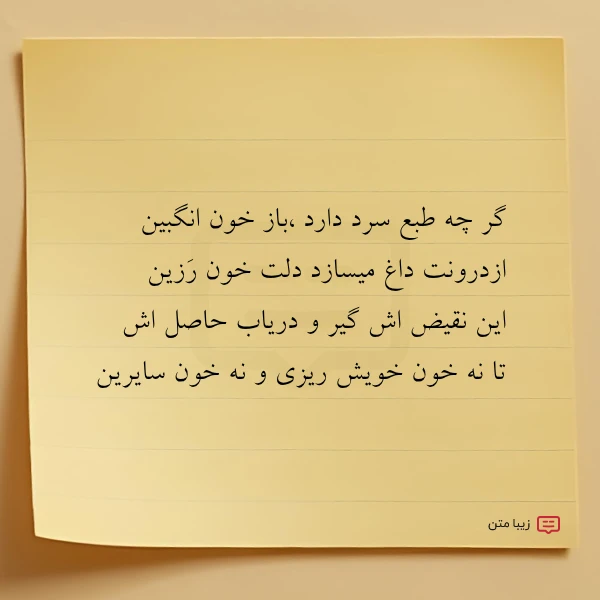 گر چه طبع سرد دارد ،باز خون انگبین
ازدرونت داغ میسازد دلت خون رَزین
این نقیض اش گیر و دریاب حاصل اش
تا نه خون خویش ریزی و نه خون سایرین
زیبا متن